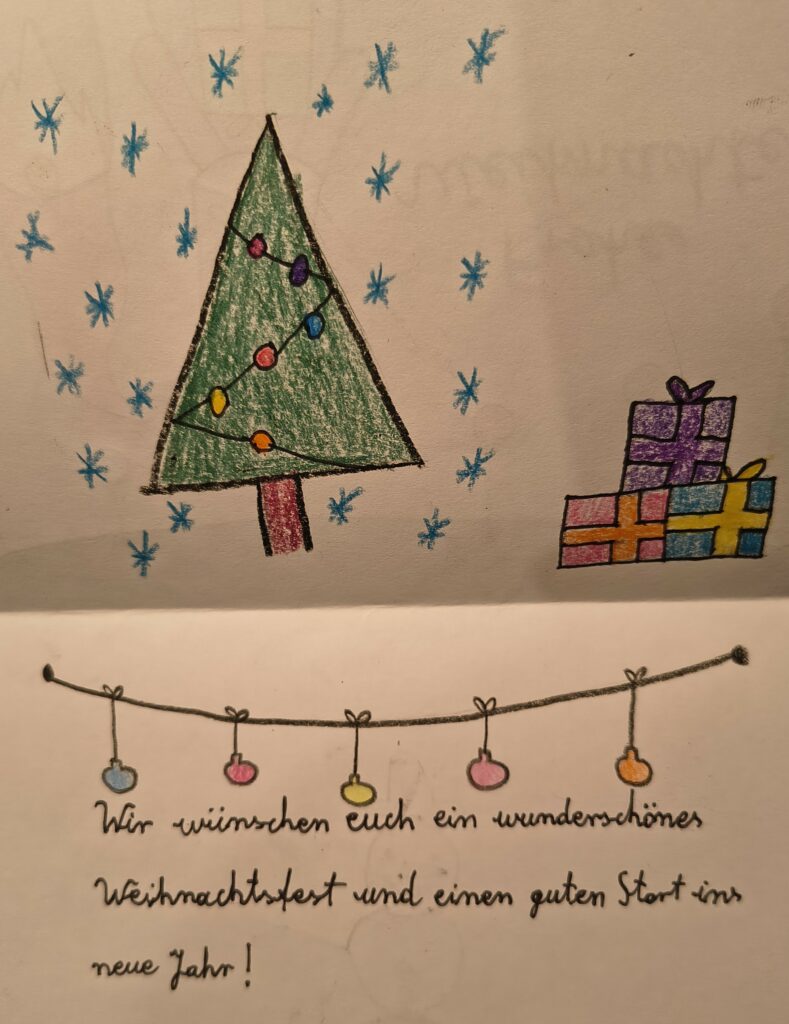 Wir wünschen euch ein wunderschönes
Weihnachtsfest und einen guten Start ins
neue Jahr!